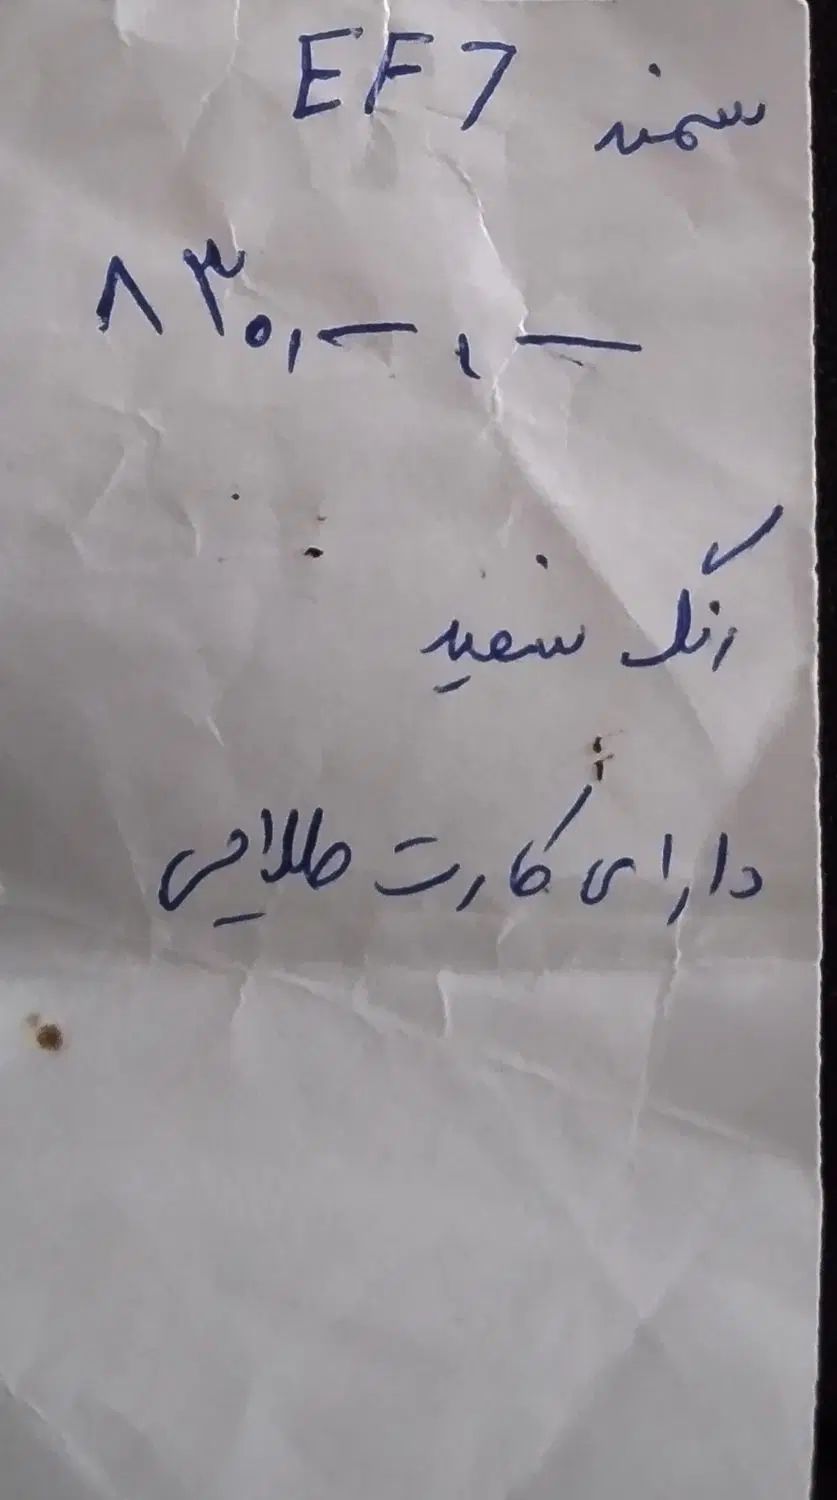 سمند EF7
۸۳۰,—,—
رنگ سفید
دارای کارت طلایی